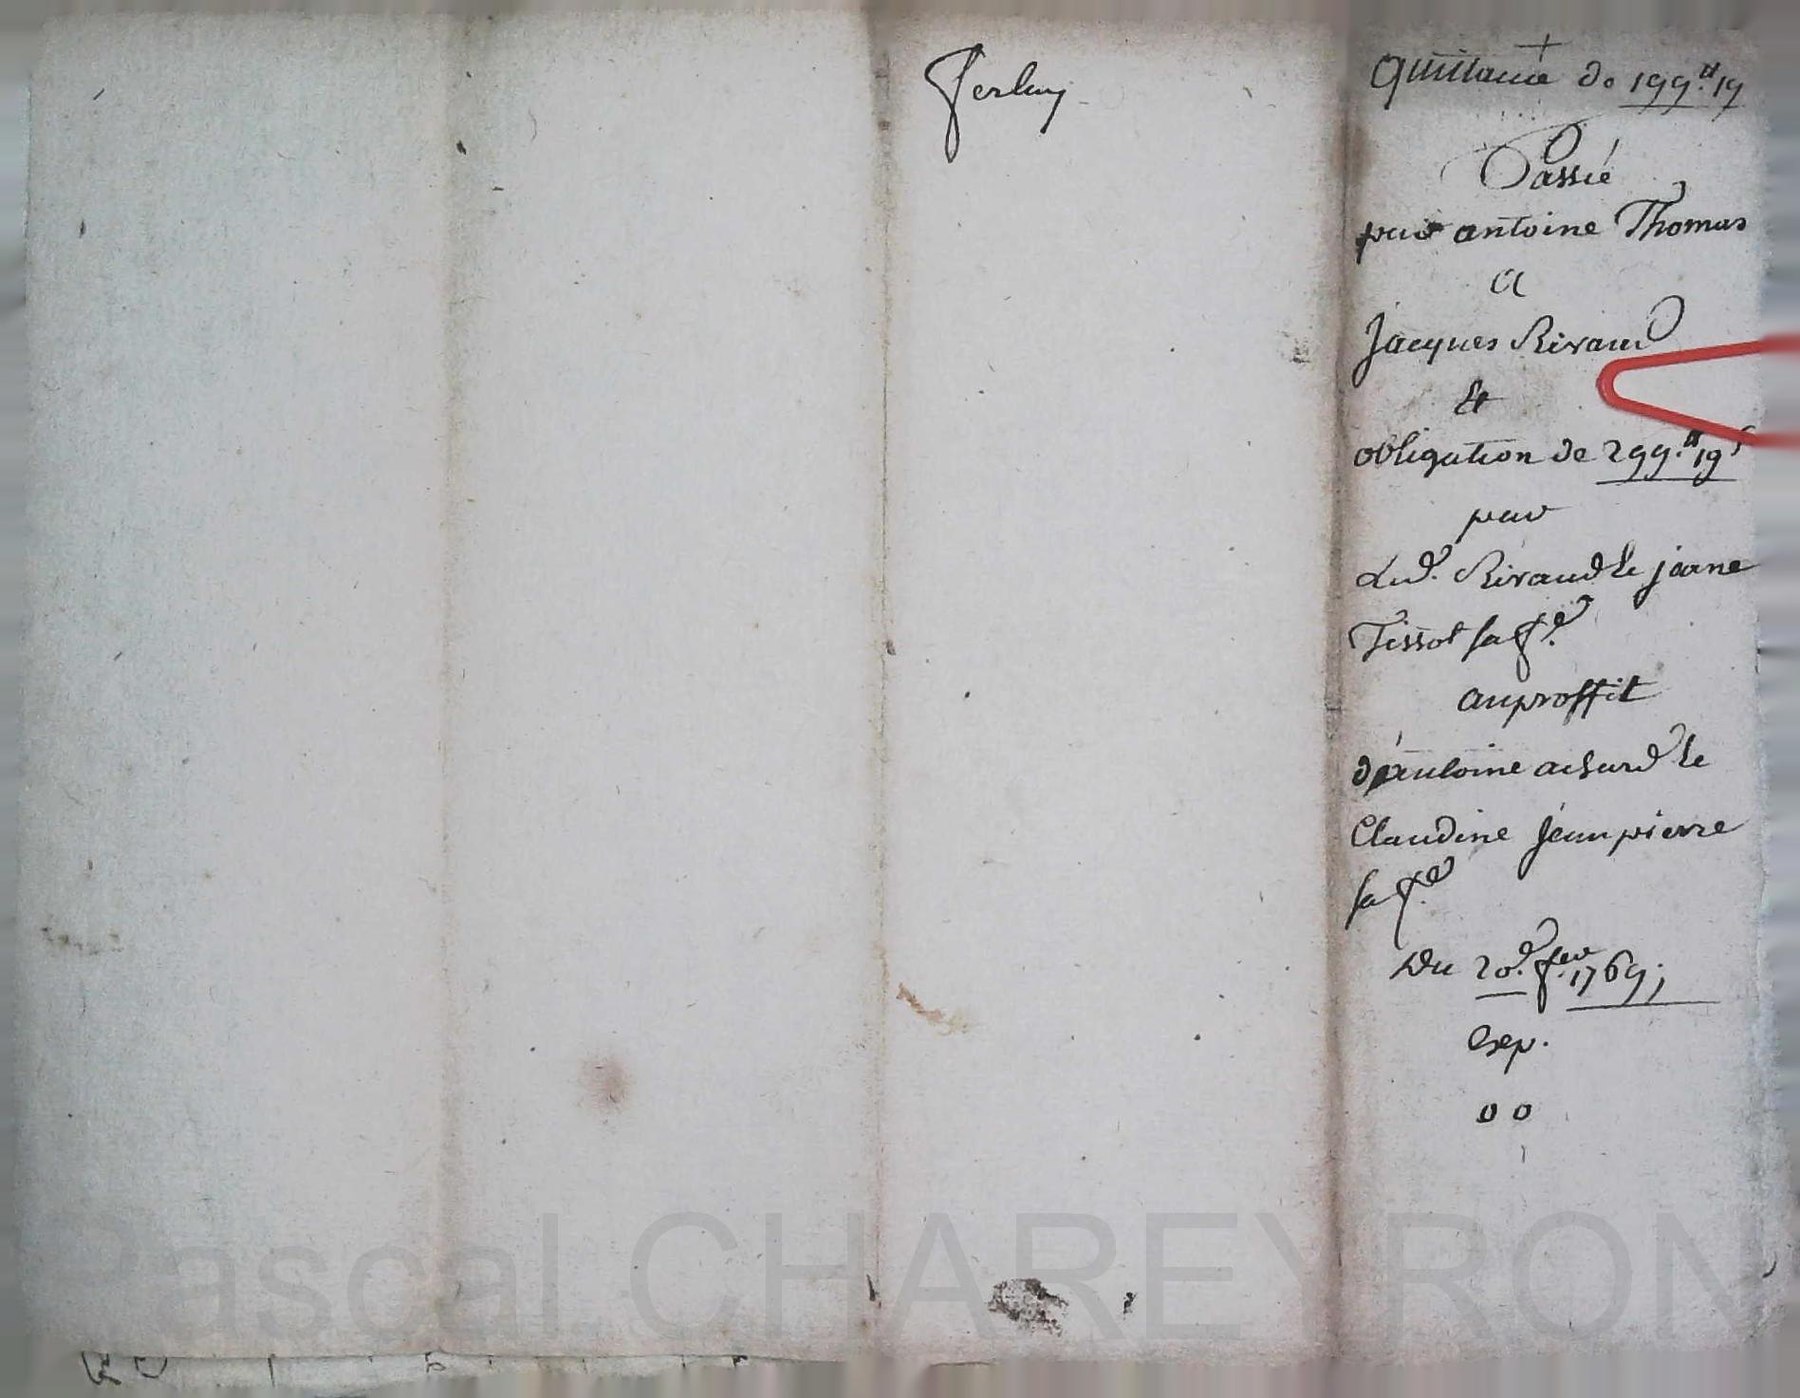 Ferluy
Quittance de 199.# 19
Passé
par antoine Thomas
a
Jacques Rivaud
Et
obligation de 299.# 19 s
par
Led. Rivaud & jeane
Tissot sa f.e
au proffit
d'antoine achard &
Claudine jeanpierre
sa f.e
Du 20.e f.er 1769;
Exp.
00
Pascal CHAREYRON